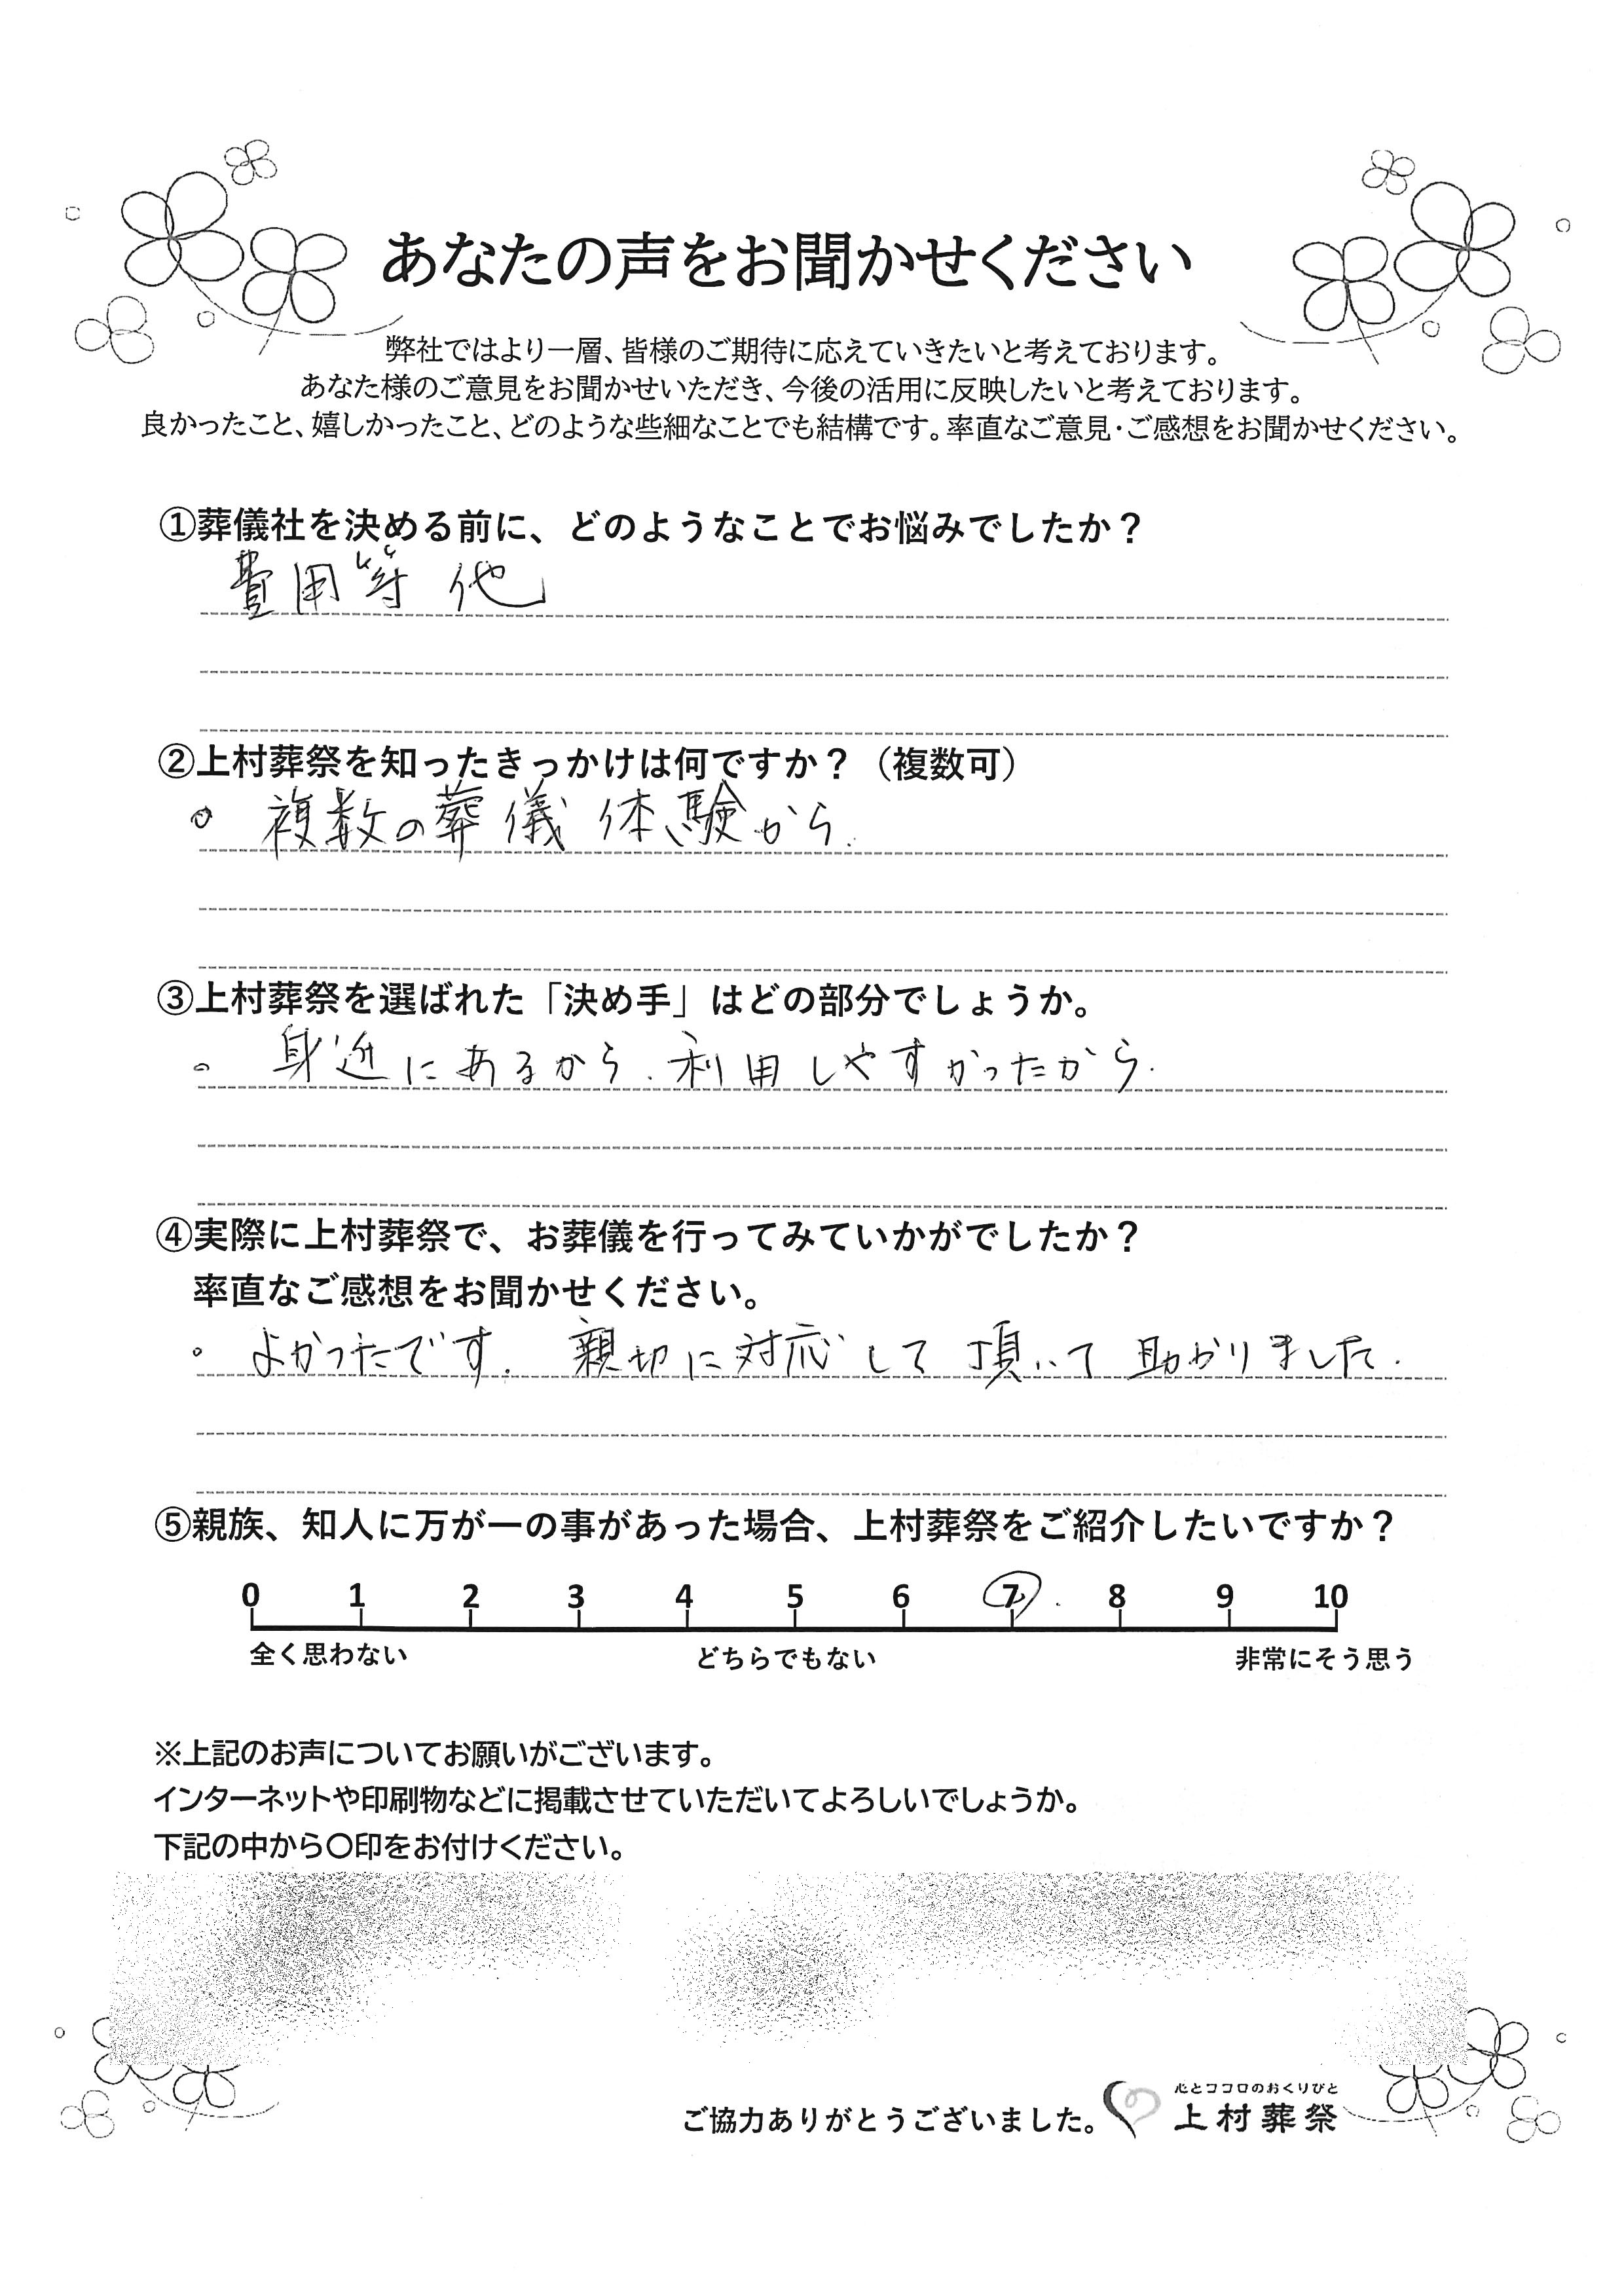 あなたの声をお聞かせください
弊社ではより一層、皆様のご期待に応えていきたいと考えております。
あなた様のご意見をお聞かせいただき、今後の活用に反映したいと考えております。
良かったこと、嬉しかったこと、どのような些細なことでも結構です。率直なご意見・ご感想をお聞かせください。
①葬儀社を決める前に、どのようなことでお悩みでしたか？
費用等 他
②上村葬祭を知ったきっかけは何ですか？（複数可）
。複数の葬儀体験から.
③上村葬祭を選ばれた「決め手」はどの部分でしょうか。
。身近にあるから.利用しやすかったから.
④実際に上村葬祭で、お葬儀を行ってみていかがでしたか？
率直なご感想をお聞かせください。
。よかったです. 親切に対応して頂いて助かりました.
⑤親族、知人に万が一の事があった場合、上村葬祭をご紹介したいですか？
0 1 2 3 4 5 6 7 8 9 10
全く思わない どちらでもない 非常にそう思う
※上記のお声についてお願いがございます。
インターネットや印刷物などに掲載させていただいてよろしいでしょうか。
下記の中から〇印をお付けください。
心とココロのおくりびと
ご協力ありがとうございました。 上村葬祭